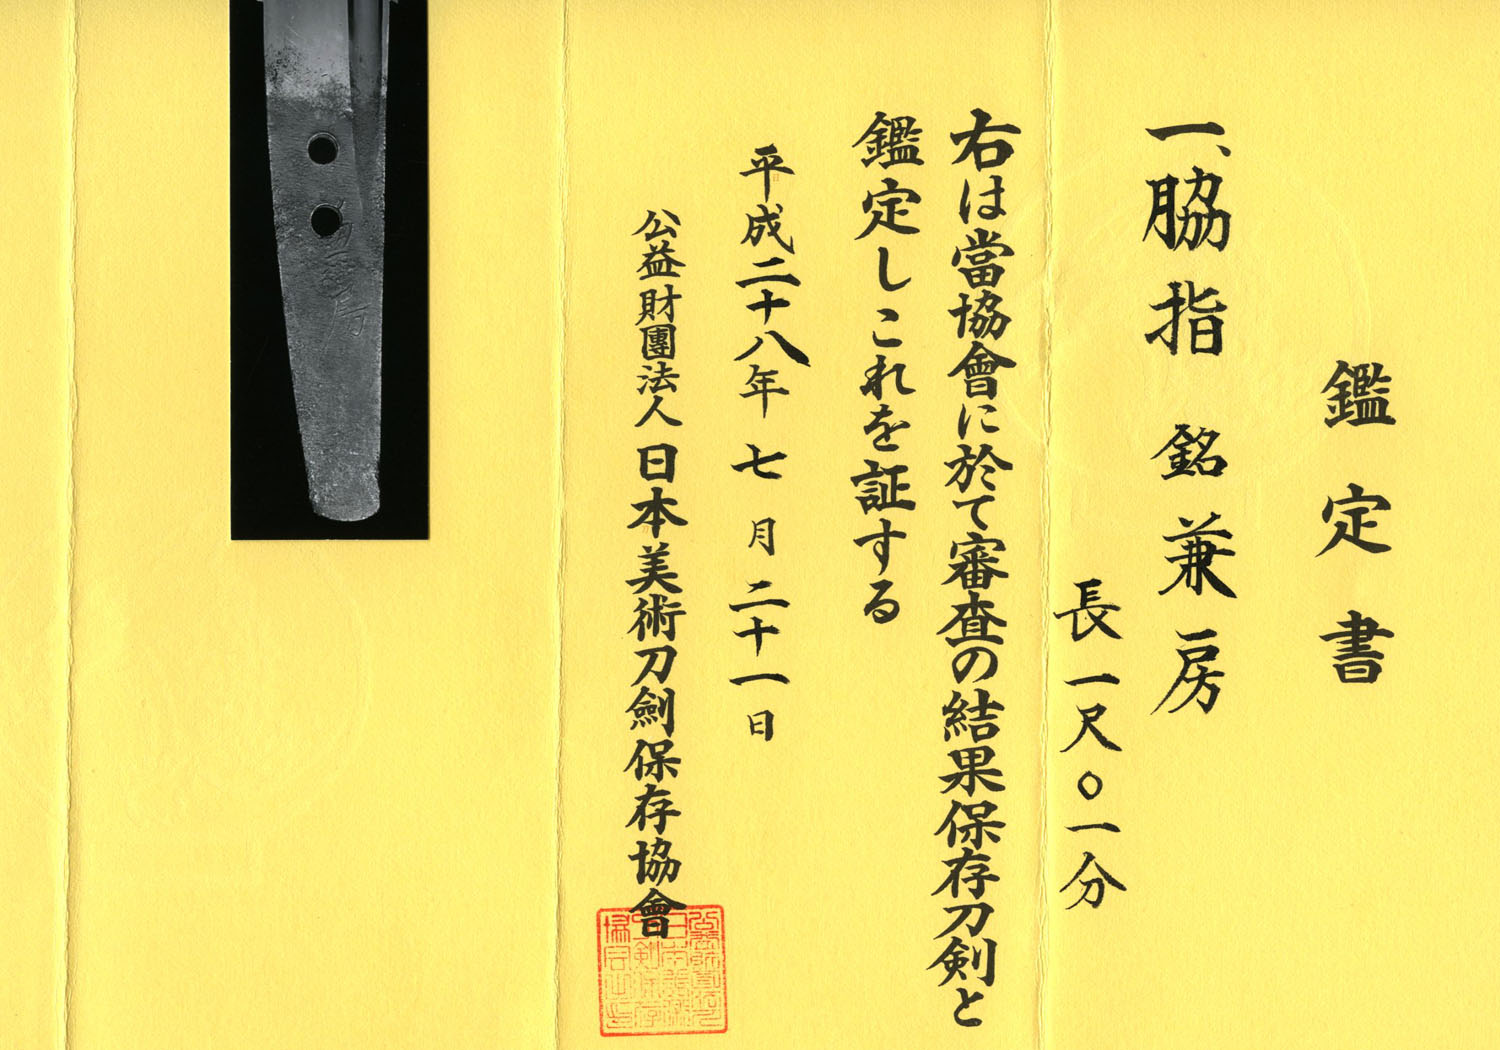 鑑定書
一、脇指 銘 兼房
長一尺〇一分
右は當協會に於て審査の結果保存刀剣と
鑑定しこれを証する
平成二十八年 七月 二十一日
公益財團法人 日本美術刀劍保存協會
兼房